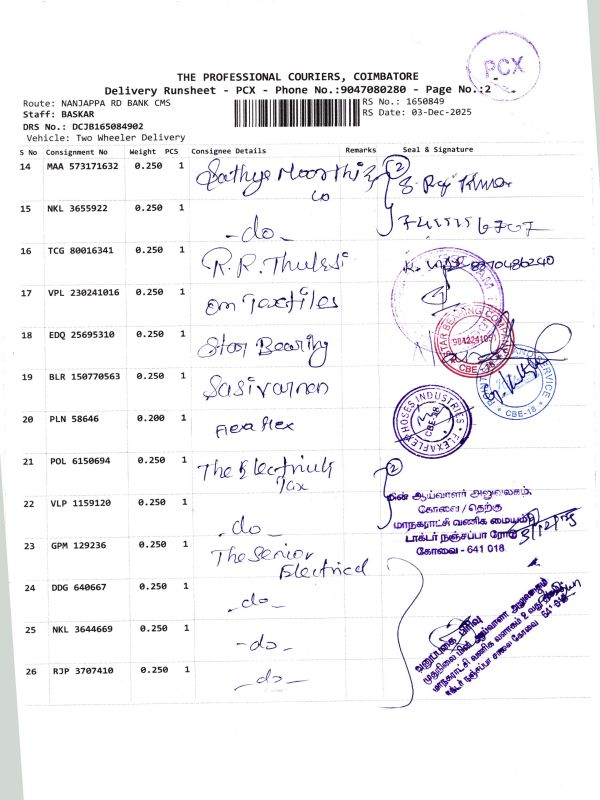 PCX
THE PROFESSIONAL COURIERS, COIMBATORE
Delivery Runsheet - PCX - Phone No.:9047080280 - Page No.:2
Route: NANJAPPA RD BANK CMS
RS No.: 1650849
Staff: BASKAR
RS Date: 03-Dec-2025
DRS No.: DCJB165084902
Vehicle: Two Wheeler Delivery
S No Consignment No Weight PCS Consignee Details Remarks Seal & Signature
14 MAA 573171632 0.250 1 Sathya Moorthi & 2
co
15 NKL 3655922 0.250 1 -do-
16 TCG 80016341 0.250 1 R.R. Thulasi
17 VPL 230241016 0.250 1 om Taxtiles
18 EDQ 25695310 0.250 1 Star Bearing
STAR BEARING COMPANY
9842241091
CBE-18
19 BLR 150770563 0.250 1 Sasivarnan
CBE-18
20 PLN 58646 0.200 1 Flexa flex
FLEXAFLEX HOSES INDUSTRIES
CBE-18
21 POL 6150694 0.250 1 The Electricity 2
Tax
மின் ஆய்வாளர் அலுவலகம்,
கோவை / தெற்கு
22 VLP 1159120 0.250 1 -do-
மாநகராட்சி வணிக மையம்
டாக்டர் நஞ்சப்பா ரோடு
கோவை - 641 018
3/12/25
23 GPM 129236 0.250 1 The Senior
Electrical
24 DDG 640667 0.250 1 -do-
25 NKL 3644669 0.250 1 -do-
26 RJP 3707410 0.250 1 -do-